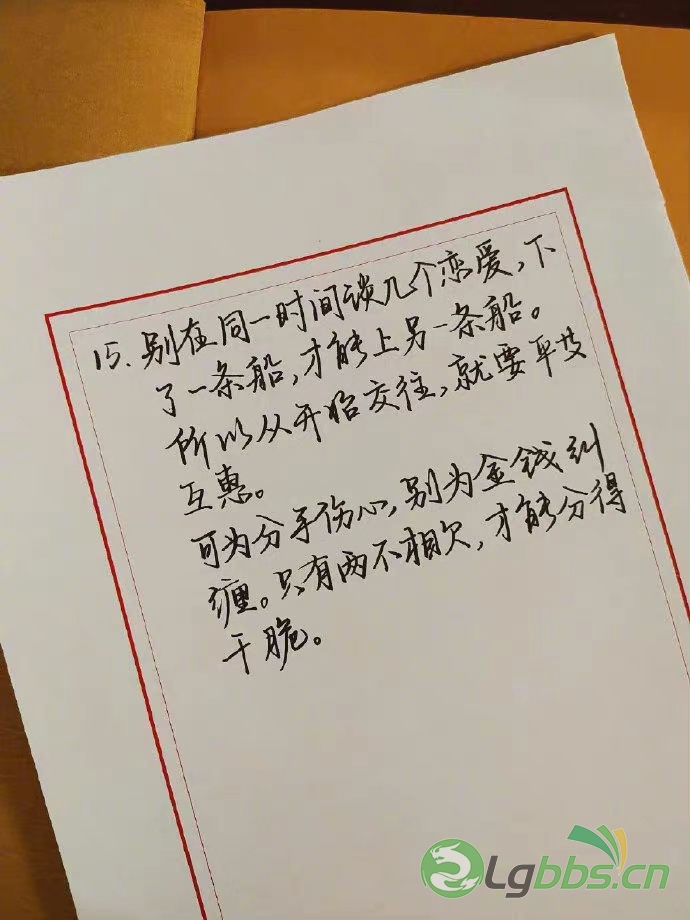 15. 别在同一时间谈几个恋爱，下
了一条船，才能上另一条船。
所以从开始交往，就要平安
互惠。
可为分手伤心，别为金钱纠
缠。只有两不相欠，才能分得
干脆。
Lgbbs.cn